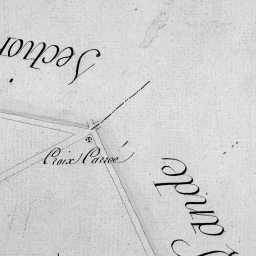 Section
Croix Carrée
Lande